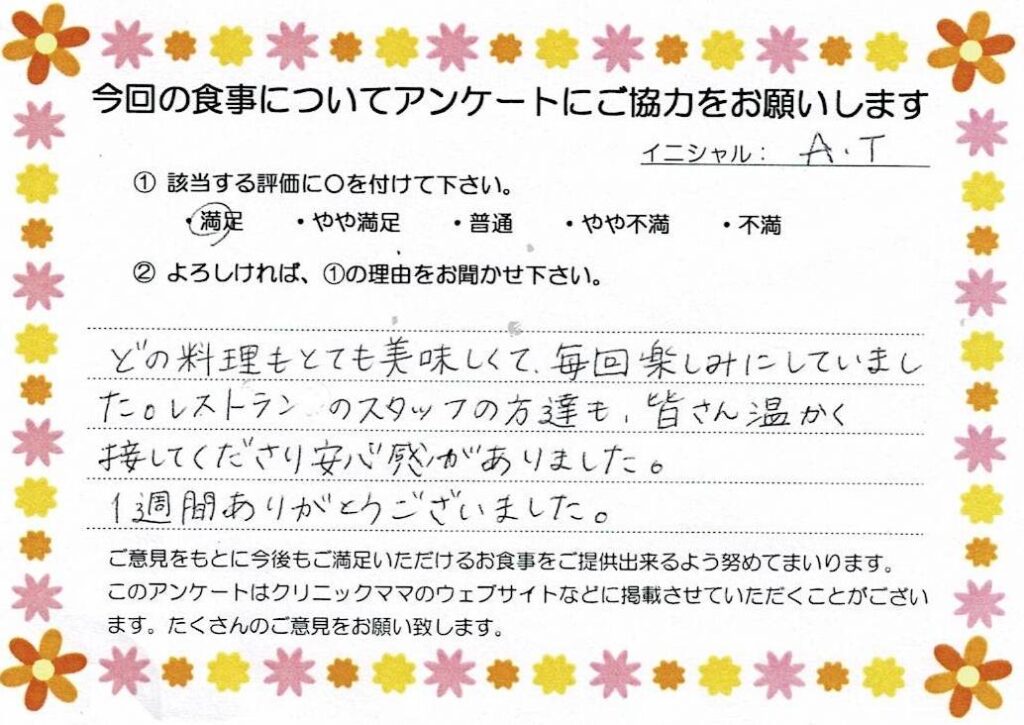 今回の食事についてアンケートにご協力をお願いします
イニシャル： A.T
① 該当する評価に〇を付けて下さい。
・満足 ・やや満足 ・普通 ・やや不満 ・不満
② よろしければ、①の理由をお聞かせ下さい。
どの料理もとても美味しくて、毎回楽しみにしていまし
た。レストランのスタッフの方達も、皆さん温かく
接してくださり安心感がありました。
1週間ありがとうございました。
ご意見をもとに今後もご満足いただけるお食事をご提供出来るよう努めてまいります。
このアンケートはクリニックママのウェブサイトなどに掲載させていただくことがござい
ます。たくさんのご意見をお願い致します。